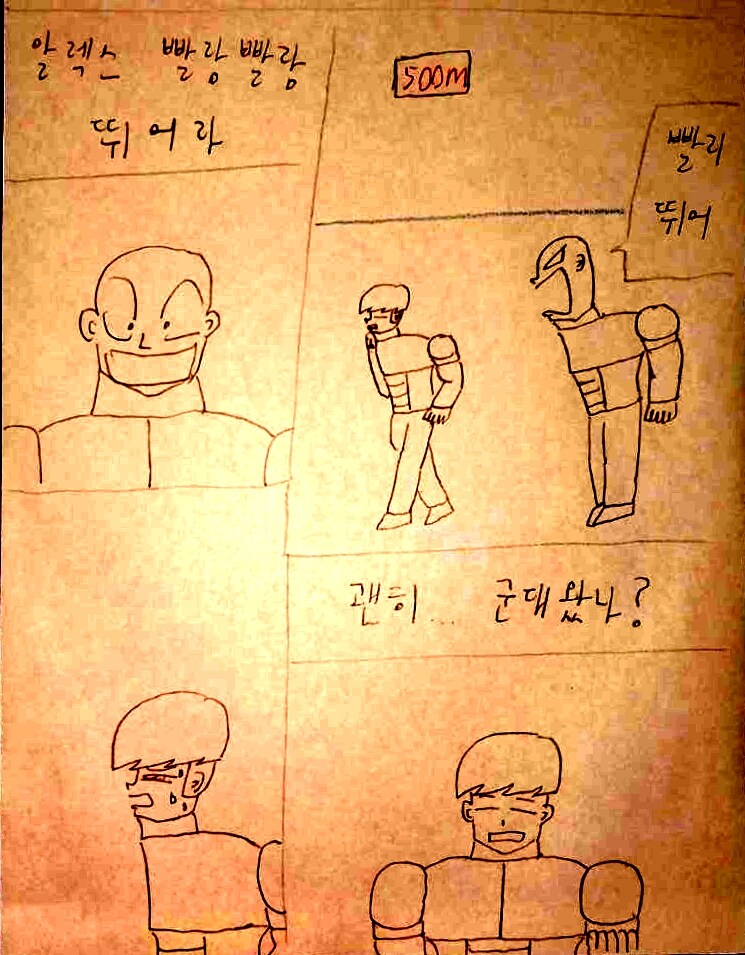 알렉스 빨랑빨랑
뛰어라
500M
빨리
뛰어
괜히... 군대왔나?